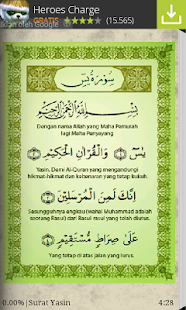 Heroes Charge
GRATIS ★★★★★ (15.565)
Iklan oleh Google
سورة يس
بِسْمِ اللَّهِ الرَّحْمَٰنِ الرَّحِيمِ
Dengan nama Allah yang Maha Pemurah
lagi Maha Penyayang
يسٓ ۝ وَالْقُرْآنِ الْحَكِيمِ ۝
Yasin. Demi Al-Quran yang mengandungi
hikmat-hikmat dan kebenaran yang tetap kukuh.
إِنَّكَ لَمِنَ الْمُرْسَلِينَ ۝
Sesungguhnya engkau(wahai Muhammad adalah
seorang Rasul) dari Rasul-rasul yang telah diutus.
عَلَىٰ صِرَاطٍ مُسْتَقِيمٍ ۝
Yang tetap di atas jalan yang lurus.
0.00% Surat Yasin 4:28